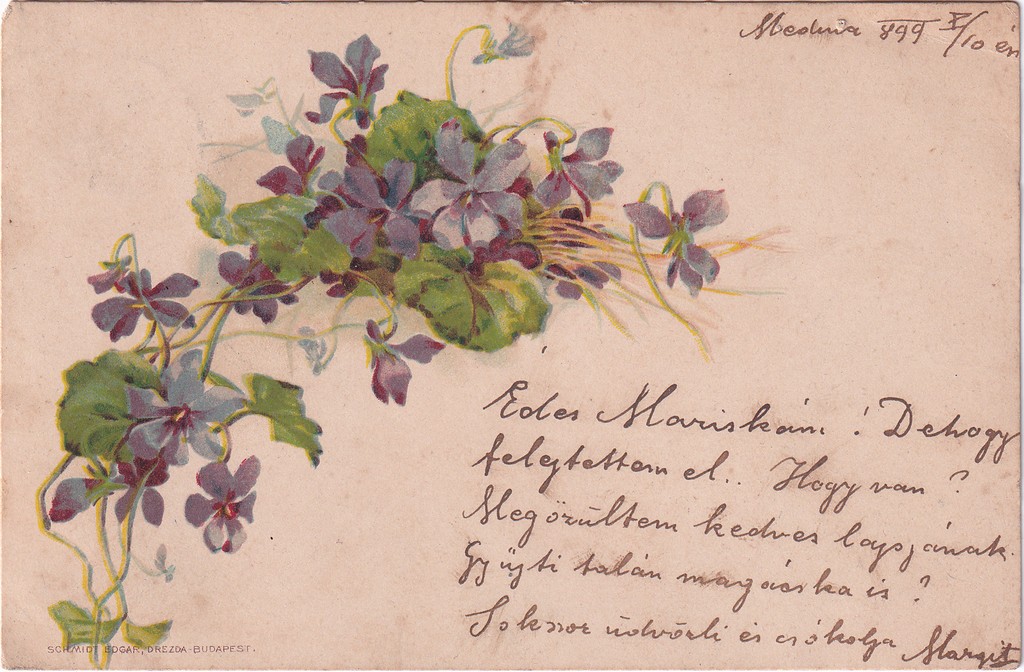 Medina 899 X/10 én
Édes Mariskám! Dehogy
felejtettem el.. Hogy van?
Megörültem kedves lapjának.
Gyüjti talán magácska is?
Sokszor üdvözli és csókolja Margit
SCHMIDT EDGAR, DREZDA-BUDAPEST.